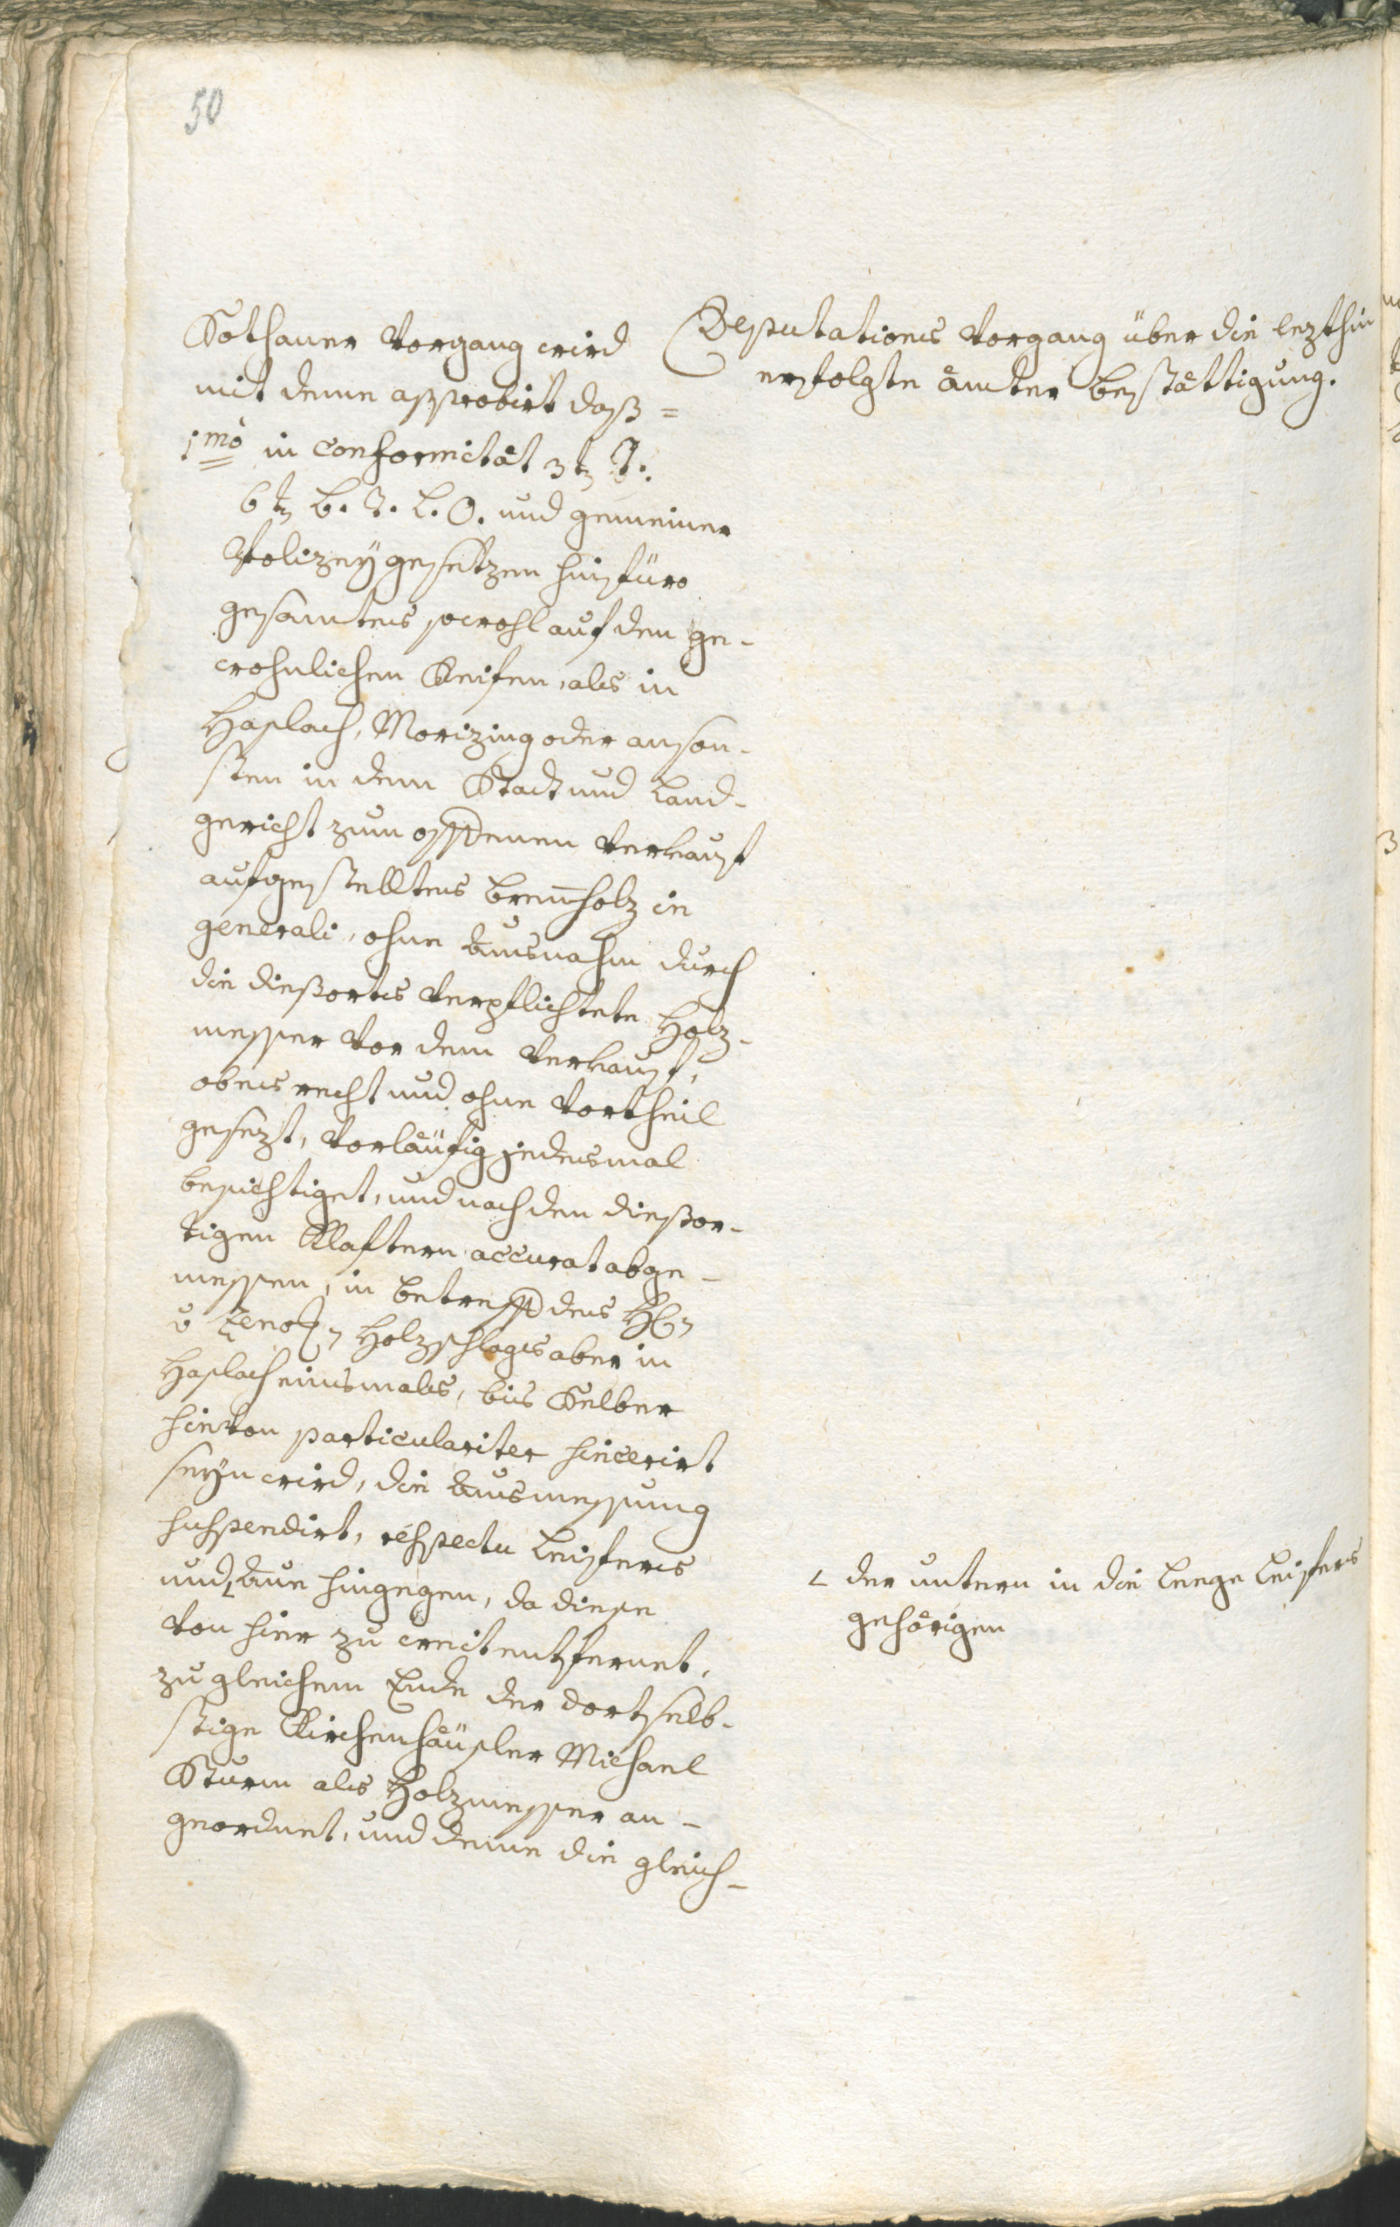 50
Sothaner Vorgang wird
mit deme approbirt daß =
1mo in conformität 3ts T.
6ts B. T. L. O. und gemeiner
Polizeÿ gesetzen hinfüro
gesamtes sowohl auf den ge-
wohnlichen Reifen, als in
Haslach, Morizing oder anson-
sten in dem Stadt und Land-
gericht zum offenen Verkauf
aufgestelltes Brennholz in
generali, ohne Ausnahm durch
die dießorts verpflichtete Holz-
messer vor dem Verkauf,
obe es recht und ohne Vortheil
gesezt, vorläufig jedesmal
besichtiget, und nach den dießor-
tigen Klaftern accurat abge-
messen, in betreff des H:
v Zenoh: Holzschlages aber in
Haslach einsmals, bis Selber
hievon particulariter sincerirt
seÿn wird, die Ausmessung
suspendirt, respectu Leifers
und ∟ Aue hingegen, da diese
von hier zu weit entfernet,
zu gleichem Ende der dortselb-
stige Kirchenhäusler Michael
Sturm als Holzmesser an-
geordnet, und deme die gleich-
Deputations Vorgang über die lezthin
erfolgte ämter bestättigung.
∟ der untern in die Lege Leifers
gehörigen